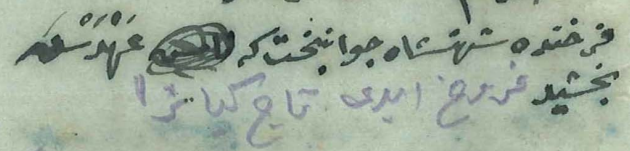 فرخنده شهنشاه جوانبخت که عهدش
بخشید فروغ ابدی تاج کیانرا